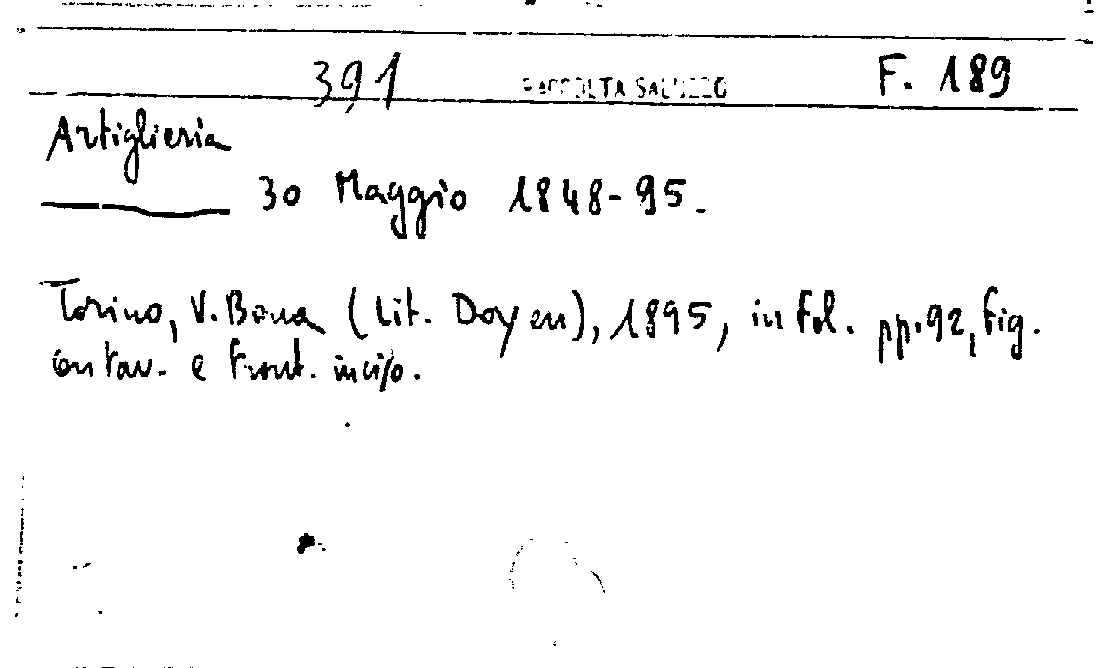 391 RACCOLTA SALUZZO F. 189
Artiglieria
30 Maggio 1848-95.
Torino, V. Bona (Lit. Doyen), 1895, in fol. pp. 92, fig.
con tav. e front. inciso.